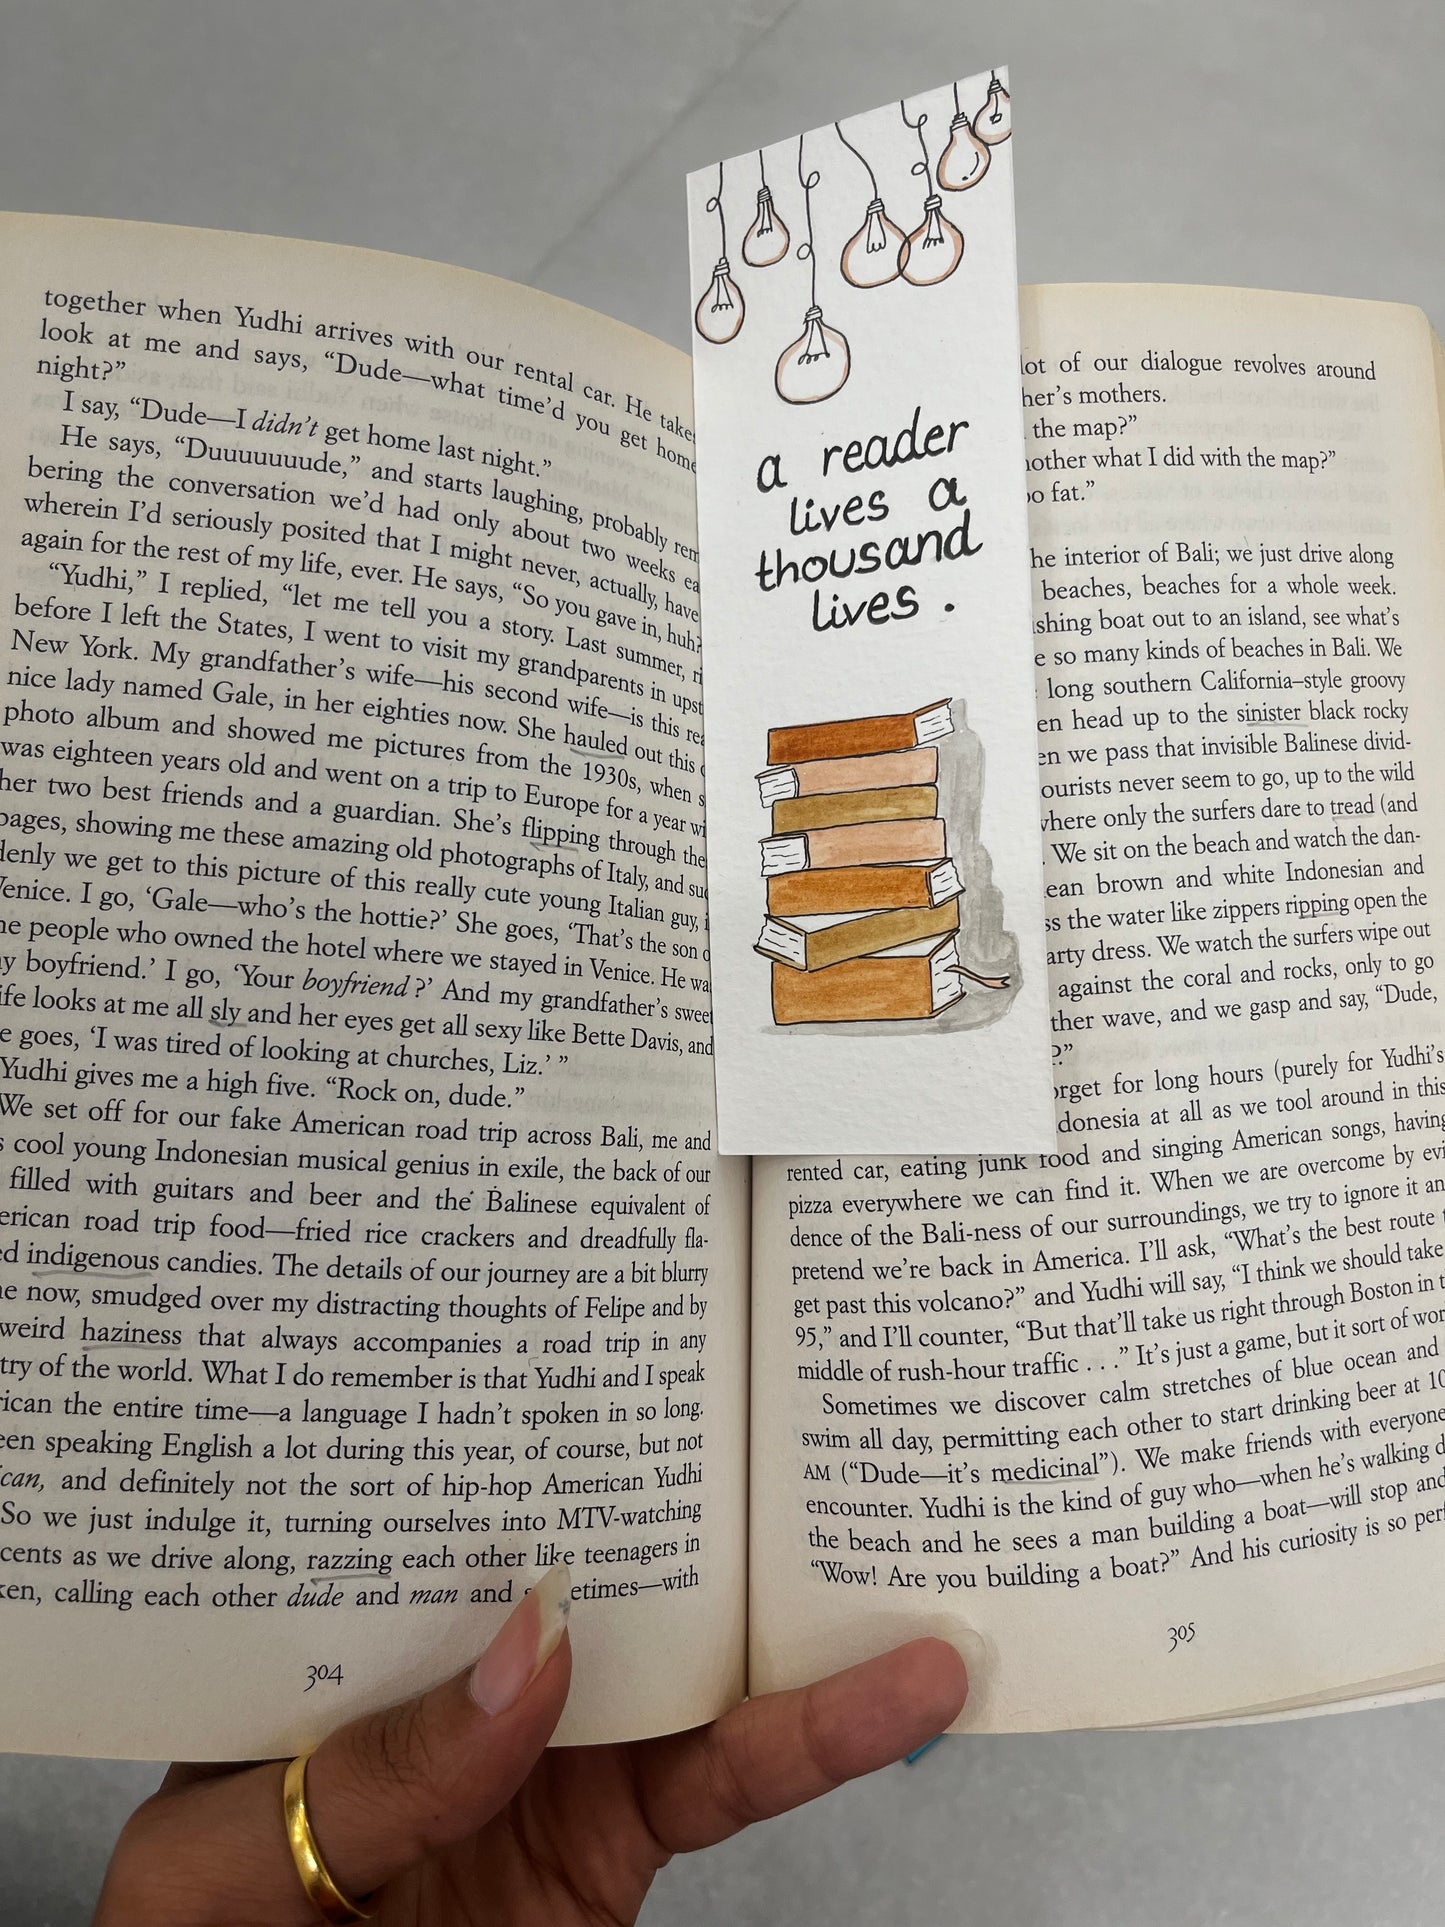 together when Yudhi arrives with our rental car. He takes
look at me and says, “Dude—what time’d you get home
night?”
I say, “Dude—I didn’t get home last night.”
He says, “Duuuuuuude,” and starts laughing, probably rem
bering the conversation we’d had only about two weeks ea
wherein I’d seriously posited that I might never, actually, have
again for the rest of my life, ever. He says, “So you gave in, huh?
“Yudhi,” I replied, “let me tell you a story. Last summer, ri
before I left the States, I went to visit my grandparents in upst
New York. My grandfather’s wife—his second wife—is this rea
nice lady named Gale, in her eighties now. She hauled out this
photo album and showed me pictures from the 1930s, when s
was eighteen years old and went on a trip to Europe for a year wi
her two best friends and a guardian. She’s flipping through the
pages, showing me these amazing old photographs of Italy, and sud
denly we get to this picture of this really cute young Italian guy, i
Venice. I go, ‘Gale—who’s the hottie?’ She goes, ‘That’s the son o
he people who owned the hotel where we stayed in Venice. He wa
y boyfriend.’ I go, ‘Your boyfriend?’ And my grandfather’s sweet
ife looks at me all sly and her eyes get all sexy like Bette Davis, and
e goes, ‘I was tired of looking at churches, Liz.’ ”
Yudhi gives me a high five. “Rock on, dude.”
We set off for our fake American road trip across Bali, me and
s cool young Indonesian musical genius in exile, the back of our
filled with guitars and beer and the Balinese equivalent of
erican road trip food—fried rice crackers and dreadfully fla-
ed indigenous candies. The details of our journey are a bit blurry
e now, smudged over my distracting thoughts of Felipe and by
weird haziness that always accompanies a road trip in any
try of the world. What I do remember is that Yudhi and I speak
rican the entire time—a language I hadn’t spoken in so long.
een speaking English a lot during this year, of course, but not
ican, and definitely not the sort of hip-hop American Yudhi
So we just indulge it, turning ourselves into MTV-watching
cents as we drive along, razzing each other like teenagers in
ken, calling each other dude and man and s etimes—with
304
a reader
lives a
thousand
lives.
lot of our dialogue revolves around
her’s mothers.
the map?”
nother what I did with the map?”
oo fat.”
he interior of Bali; we just drive along
beaches, beaches for a whole week.
shing boat out to an island, see what’s
e so many kinds of beaches in Bali. We
long southern California–style groovy
en head up to the sinister black rocky
en we pass that invisible Balinese divid-
ourists never seem to go, up to the wild
where only the surfers dare to tread (and
. We sit on the beach and watch the dan-
ean brown and white Indonesian and
ss the water like zippers ripping open the
arty dress. We watch the surfers wipe out
against the coral and rocks, only to go
ther wave, and we gasp and say, “Dude,
?”
orget for long hours (purely for Yudhi’s
donesia at all as we tool around in this
rented car, eating junk food and singing American songs, having
pizza everywhere we can find it. When we are overcome by evi
dence of the Bali-ness of our surroundings, we try to ignore it an
pretend we’re back in America. I’ll ask, “What’s the best route t
get past this volcano?” and Yudhi will say, “I think we should take
95,” and I’ll counter, “But that’ll take us right through Boston in t
middle of rush-hour traffic . . .” It’s just a game, but it sort of wor
Sometimes we discover calm stretches of blue ocean and
swim all day, permitting each other to start drinking beer at 10
AM (“Dude—it’s medicinal”). We make friends with everyone
encounter. Yudhi is the kind of guy who—when he’s walking d
the beach and he sees a man building a boat—will stop and
“Wow! Are you building a boat?” And his curiosity is so perf
305